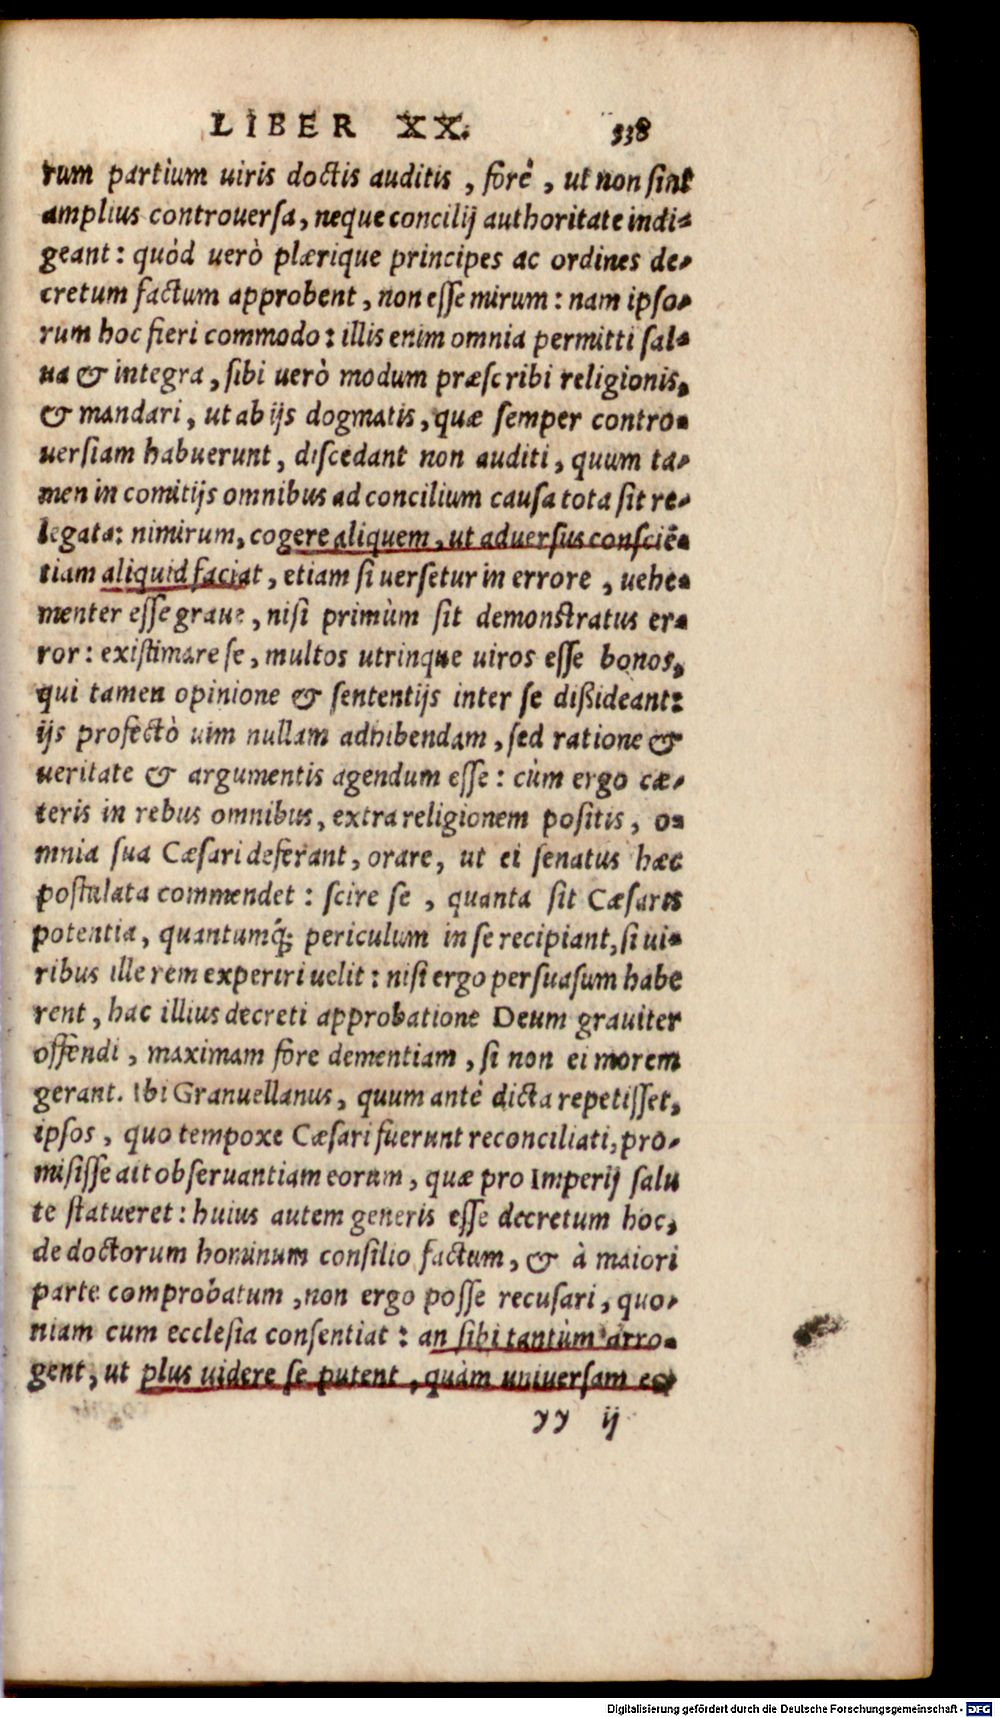 LIBER XX. 338
rum partium uiris doctis auditis, forè, ut non sint
amplius controuersa, neque concilij authoritate indi-
geant: quòd uerò plærique principes ac ordines de-
cretum factum approbent, non esse mirum: nam ipso-
rum hoc fieri commodo: illis enim omnia permitti sal-
ua & integra, sibi uerò modum præscribi religionis,
& mandari, ut ab ijs dogmatis, quæ semper contro-
uersiam habuerunt, discedant non auditi, quum ta-
men in comitijs omnibus ad concilium causa tota sit re-
legata: nimirum, cogere aliquem, ut aduersus consciē-
tiam aliquid faciat, etiam si uersetur in errore, uehe-
menter esse graue, nisi primùm sit demonstratus er-
ror: existimare se, multos utrinque uiros esse bonos,
qui tamen opinione & sententijs inter se dißideant:
ijs profectò uim nullam adhibendam, sed ratione &
ueritate & argumentis agendum esse: cùm ergo cæ-
teris in rebus omnibus, extra religionem positis, o-
mnia sua Cæsari deferant, orare, ut ei senatus hæc
postulata commendet: scire se, quanta sit Cæsaris
potentia, quantumq́; periculum in se recipiant, si ui-
ribus ille rem experiri uelit: nisi ergo persuasum habe
rent, hac illius decreti approbatione Deum grauiter
offendi, maximam fore dementiam, si non ei morem
gerant. Ibi Granuellanus, quum antè dicta repetisset,
ipsos, quo tempore Cæsari fuerunt reconciliati, pro-
misisse ait obseruantiam eorum, quæ pro Imperij salu
te statueret: huius autem generis esse decretum hoc,
de doctorum hominum consilio factum, & à maiori
parte comprobatum, non ergo posse recusari, quo-
niam cum ecclesia consentiat: an sibi tantùm arro-
gent, ut plus uidere se putent, quàm uniuersam ec-
yy ij
Digitalisierung gefördert durch die Deutsche Forschungsgemeinschaft - DFG